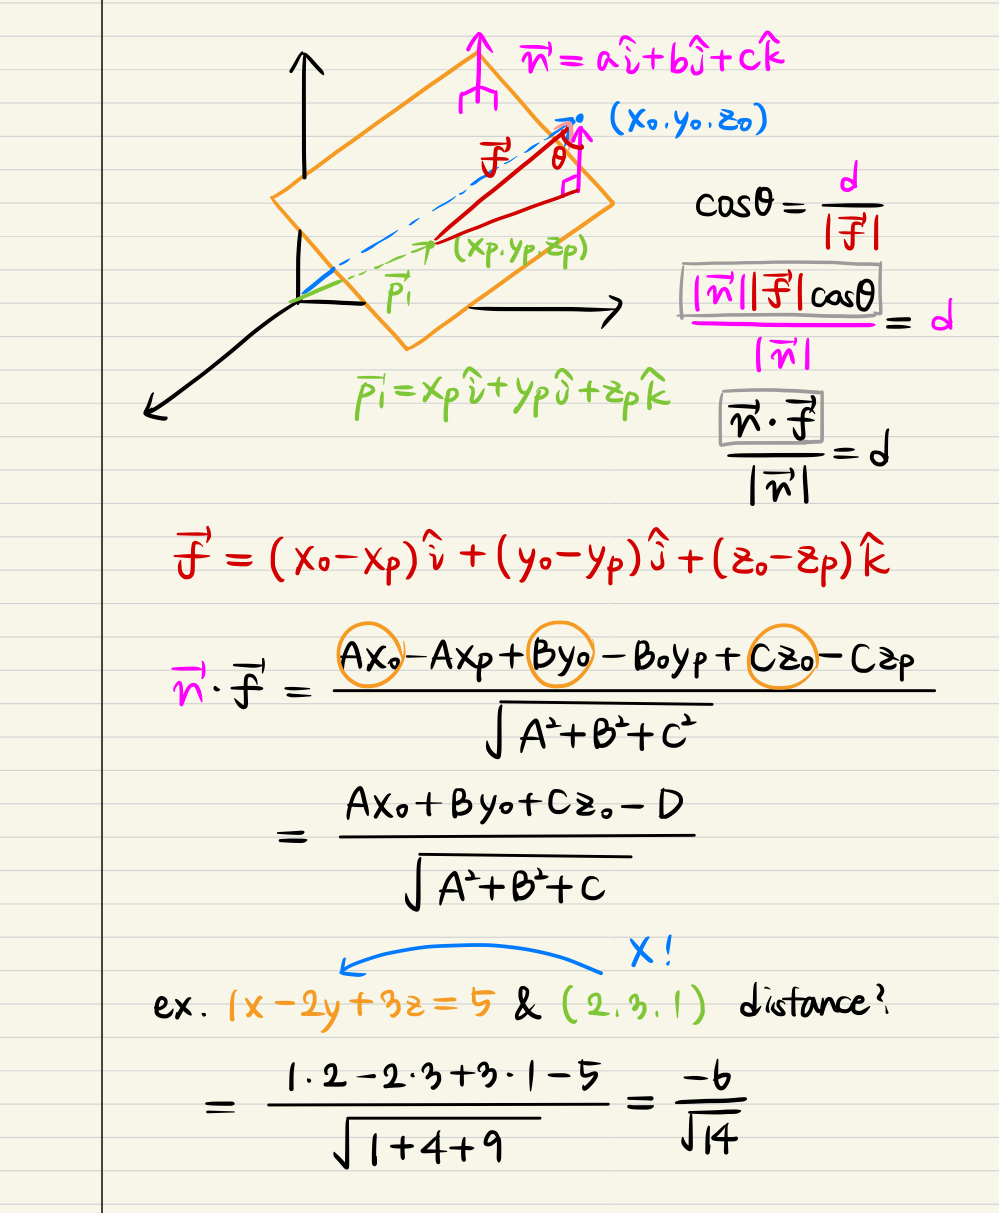 n⃗ = aî+bĵ+ck̂
(x₀.y₀.z₀)
f⃗
θ
(xₚ.yₚ.zₚ)
p⃗₁
cosθ = d / |f⃗|
|n⃗||f⃗|cosθ / |n⃗| = d
p⃗₁ = xₚî+yₚĵ+zₚk̂
n⃗·f⃗ / |n⃗| = d
f⃗ = (x₀-xₚ)î+(y₀-yₚ)ĵ+(z₀-zₚ)k̂
n⃗·f⃗ = Ax₀-Axₚ+By₀-B₀yₚ+Cz₀-Czₚ / √A²+B²+C²
= Ax₀+By₀+Cz₀-D / √A²+B²+C
X!
ex. 1x-2y+3z=5 & (2.3.1) distance?
= 1·2-2·3+3·1-5 / √1+4+9 = -6 / √14